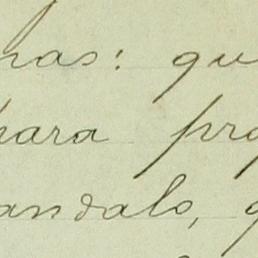 nas: qu
para pro
andalo, q